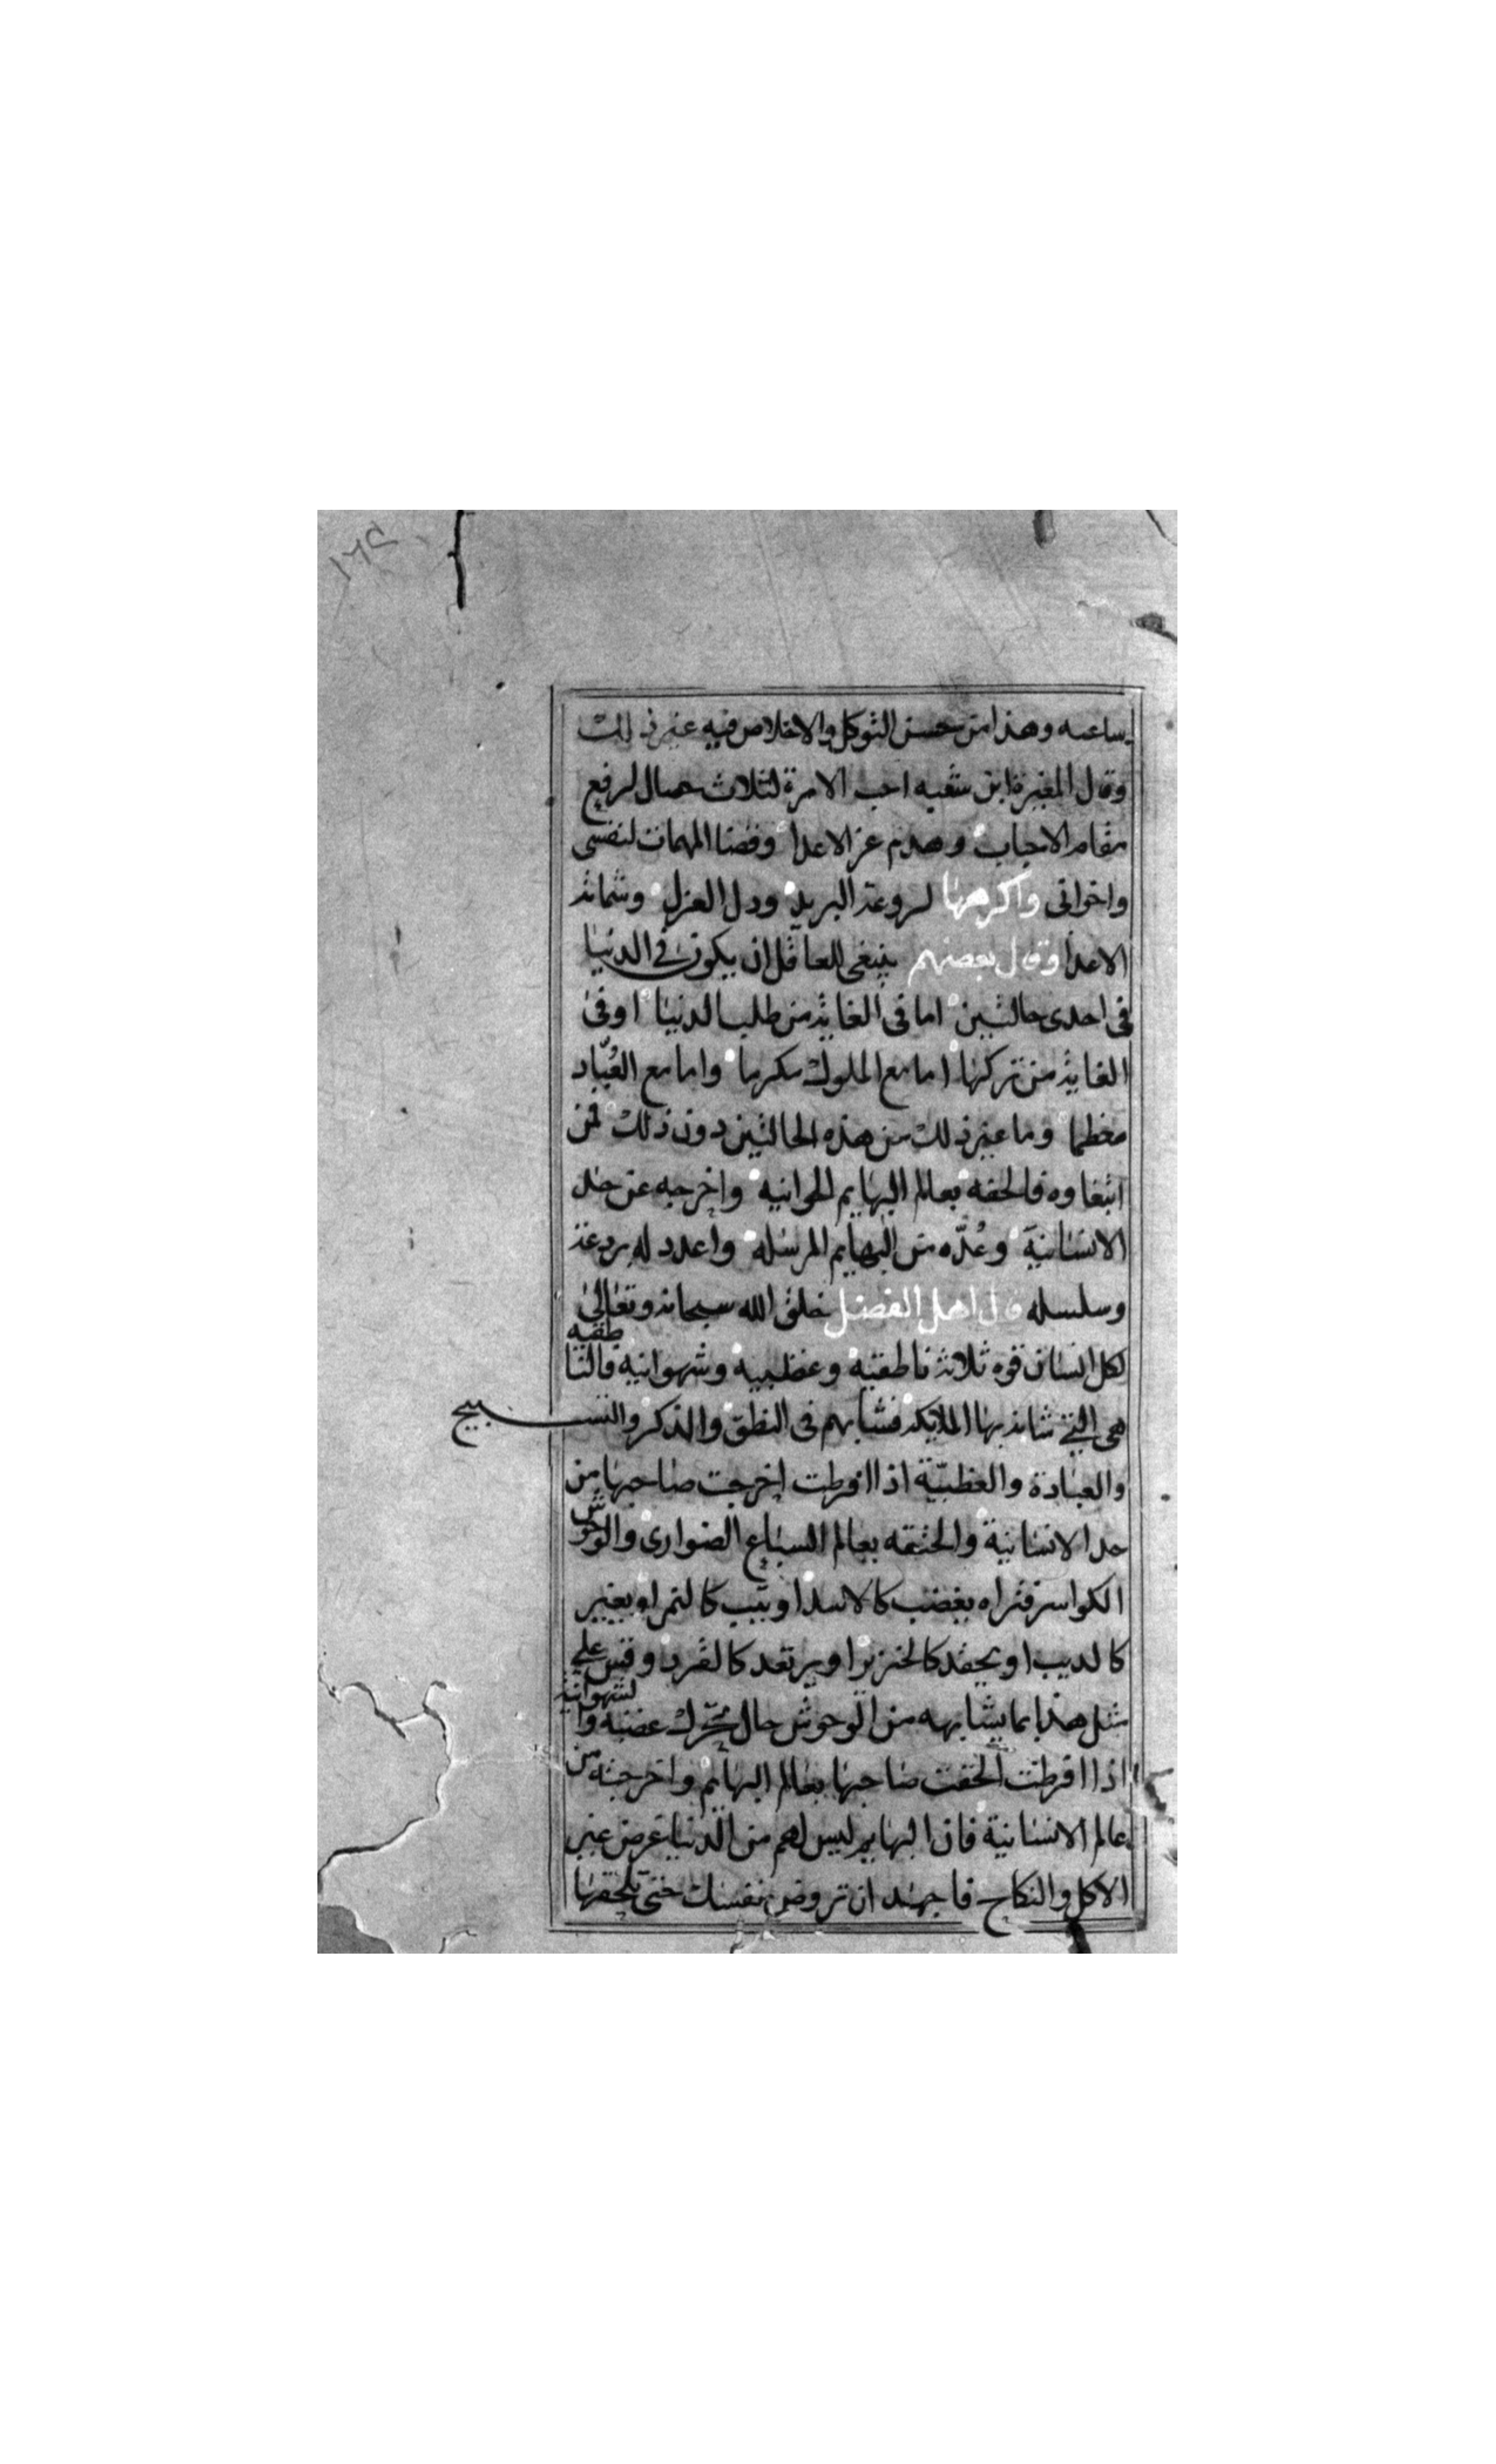 ساعىه وهذا من حسن التوكل والاخلاص فيه غير ذلك
وقال المغيرة ابن شعبه احب الامرة لثلاث خصال لرفع
مقام الاحباب وهدم عز الاعدا وقضا المهمات لنفسى
واخوانى واكرهها لروعة البريد وذل العزل وشماتة
الاعدا وقال بعضهم ينبغى للعاقل ان يكون فى الدنيا
فى احدى حالتين اما فى الغاية من طلب الدنيا او فى
الغاية من تركها اما مع الملوك مكرما واما مع العُبّاد
معظما وما غير ذلك من هذه الحالتين دون ذلك فمن
ابتغاوه فالحقه بعالم البهايم الحوانيه واخرجه عن حد
الانسانية وعُدّه من البهايم المرسله واعدد له بردعة
وسلسله قال اهل الفضل خلق الله سبحانه وتعالى
لكل انسان قوه ثلاثة ناطقيه وغظبيه وشهوانية فالناطقيه
هى التى شانه بها الملايكة فشابهم فى النطق والذكر والتسبيح
والعبادة والغظبيّة اذا افرطت اخرجت صاحبها من
حد الانسانية والحتقه بعالم السباع الضوارى والوحوش
الكواسر فتراه يغضب كالاسد او يثب كالنمر او يغير
كالديب او يحقد كالخنزير او يرتعد كالقرد وقس على
مثل هذا بما يشابهه من الوحوش حال تحرك غضبه والشهوانية
اذا افرطت الحقت صاحبها بعالم البهايم واخرجته من
عالم الانسانية فان البهايم ليس لهم من الدنيا غرض غير
الاكل والنكاح فاجهد ان تروض نفسك حتى تلحقها